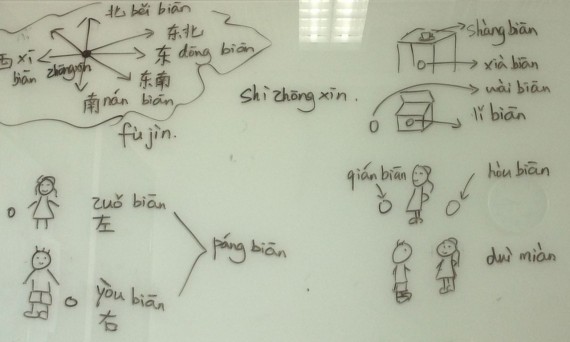 北 běi biān
东北
东 dōng biān
西 xī
biān
zhōngxīn
东南
南 nán biān
fù jìn.
shì zhōng xīn.
shàng biān
xià biān
wài biān
lǐ biān
zuǒ biān
左
páng biān
yòu biān
右
qián biān
hòu biān
duì miàn